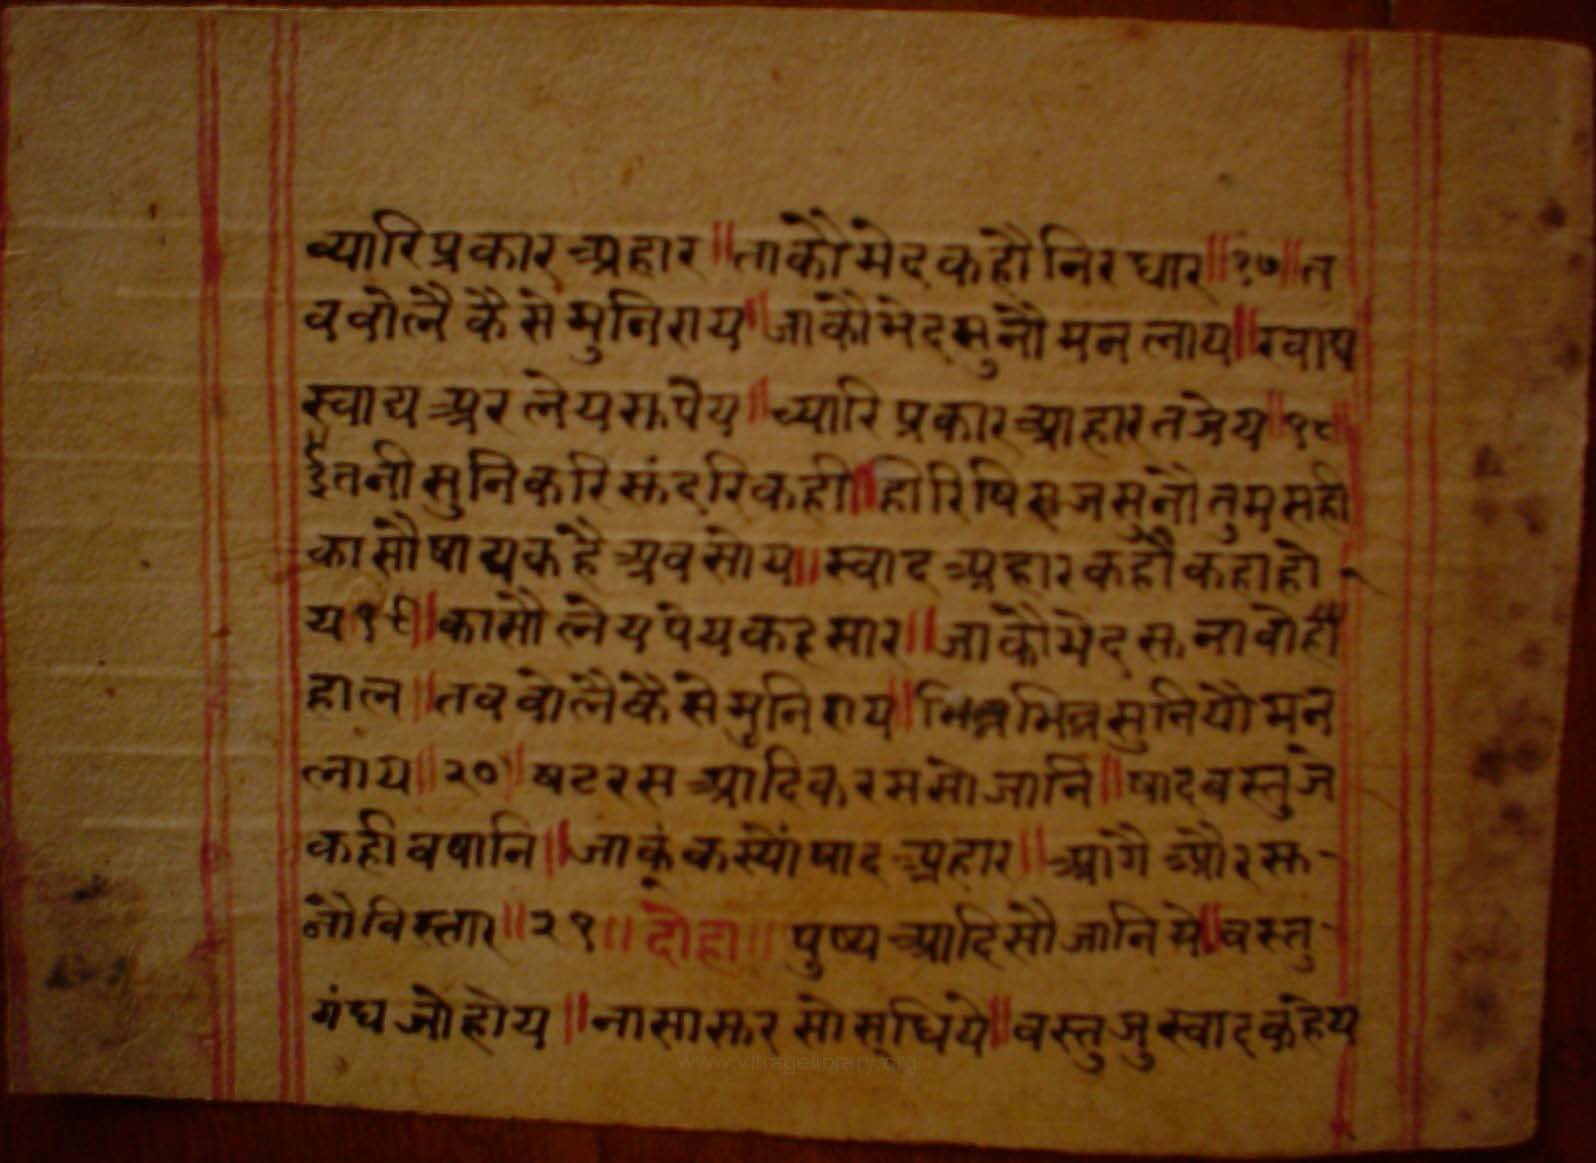 च्यारि प्रकार अहार ॥ ताकौ भेद कहौ निरधार ॥ १७ ॥ त
व वोलै कैसे मुनिराय ॥ जाकौ भेद सुनौ मन लाय ॥ स्वाद्य
स्वाद्य अर लेय रू पेय ॥ च्यारि प्रकार आहार तजेय ॥ १८ ॥
ईतनी सुनि करि सुंदरि कही ॥ हो रिषिराज सुनौ तुम सही
कासौ षाद्य कहै अव सोय ॥ स्वाद अहार कहौ कहा हो
य १९ ॥ कासौ लेय पेय कह सार ॥ जाकौ भेद सुनावो ही
हाल ॥ तव वोलै कैसे मुनिराय ॥ भिन्न भिन्न सुनियौ मन
लाय ॥ २० ॥ षटरस आदिक रस सो जानि ॥ षाद वस्तु जे
कही वषानि ॥ जाकूं कस्यौ षाद अहार ॥ आगै और सु
नौ विस्तार ॥ २१ ॥ दोहा ॥ पुष्प आदि सौ जानि मे ॥ वस्तु
गंध जो होय ॥ नासा कर सो सूधिये ॥ वस्तु जु स्वाद कहेय
www.vitragelibrary.org